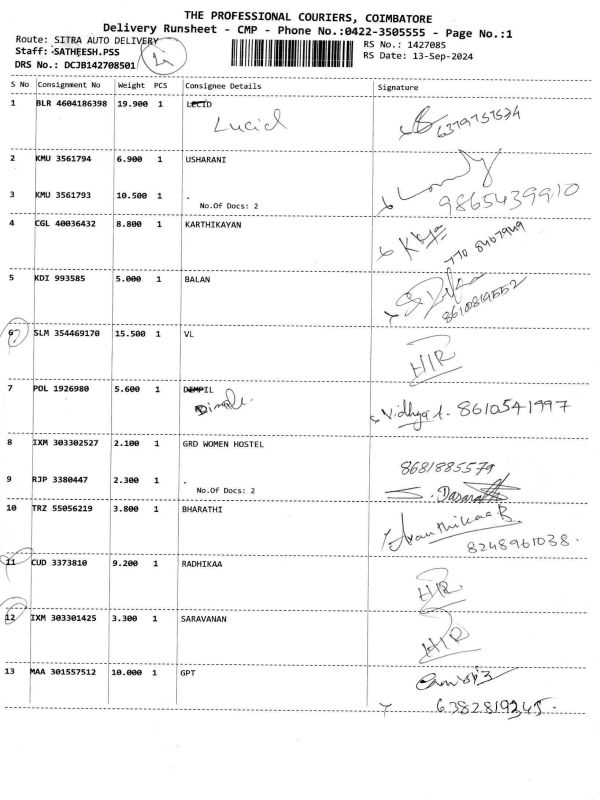 THE PROFESSIONAL COURIERS, COIMBATORE
Delivery Runsheet - CMP - Phone No.:0422-3505555 - Page No.:1
Route: SITRA AUTO DELIVERY
RS No.: 1427085
Staff: SATHEESH.PSS
RS Date: 13-Sep-2024
DRS No.: DCJB142708501
S No Consignment No Weight PCS Consignee Details Signature
1 BLR 4604186398 19.900 1 LECID
Lucid 6379757534
2 KMU 3561794 6.900 1 USHARANI
3 KMU 3561793 10.500 1 .
No.Of Docs: 2 9865439910
4 CGL 40036432 8.800 1 KARTHIKAYAN
770 8467949
5 KDI 993585 5.000 1 BALAN
8610819552
6 SLM 354469170 15.500 1 VL
HIR
7 POL 1926980 5.600 1 DIMPIL
Vidhya A. 8610541997
8 IXM 303302527 2.100 1 GRD WOMEN HOSTEL
8681885579
9 RJP 3380447 2.300 1 .
No.Of Docs: 2
10 TRZ 55056219 3.800 1 BHARATHI
Avanthikaa B
8248961038.
11 CUD 3373810 9.200 1 RADHIKAA
HIR
12 IXM 303301425 3.300 1 SARAVANAN
HIR
13 MAA 301557512 10.000 1 GPT
6382819345.